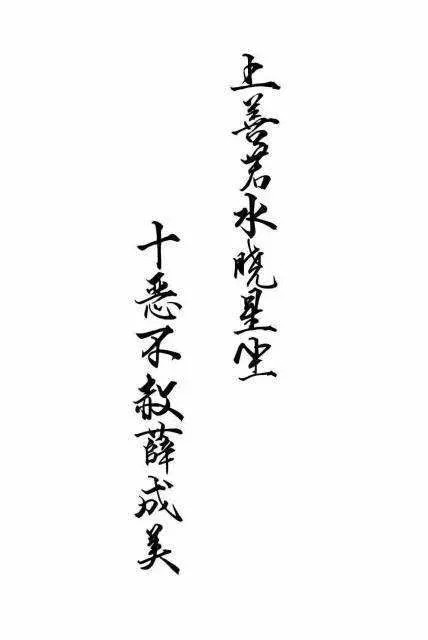 上善若水晓星尘
十恶不赦薛成美